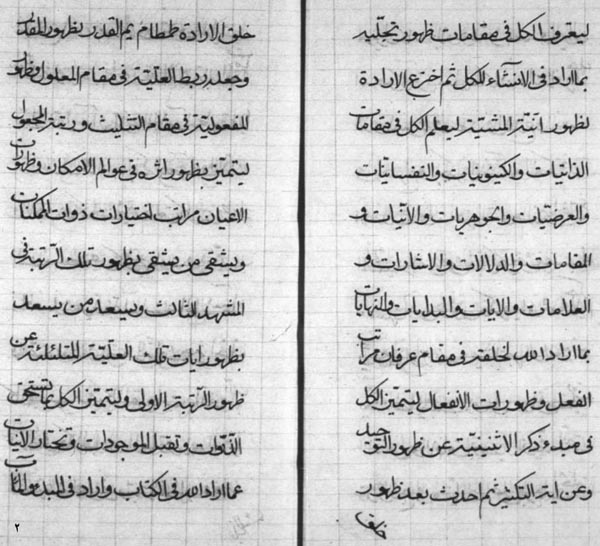 ليعرف الكل في مقامات ظهور تجليه
بما اراد في الانشاء للكل ثم اخترع الارادة
لظهور انية المشية ليعلم الكل في مقامات
الذاتيات والكينونيات والنفسانيات
والعرضيات والجوهريات والانيات و
المقامات والدلالات والاشارات و
العلامات والايات والبدايات والنهايات
بما اراد الله لخلقه في مقام عرفان مراتب
الفعل وظهورات الانفعال ليتميز الكل
في مبدء ذكر الاثنينية عن ظهور التوحيد
وعن اية التكثير ثم احدث بعد ظهور
خلق
خلق الارادة طمطام يم القدر بظهور المقدر
وجعله ربط العلية في مقام المعلول وظهور
المفعولية في مقام التثليث ورتبة المجعول
ليتميز بظهور اثره في عوالم الامكان وظهورات
الاعيان مراتب اختيارات ذوات الممكنات
ويشقى من يشقى بظهور تلك الرتبة في
المشهد الثالث ويسعد من يسعد
بظهور ايات تلك العلية المتلئلئة عن
ظهور الرتبة الاولى وليتميز الكل بما يستحق
الذوات وتقبل الموجودات وتختار الانيات
عما اراد الله في الكتاب واراد في المبدء والمآب
٢